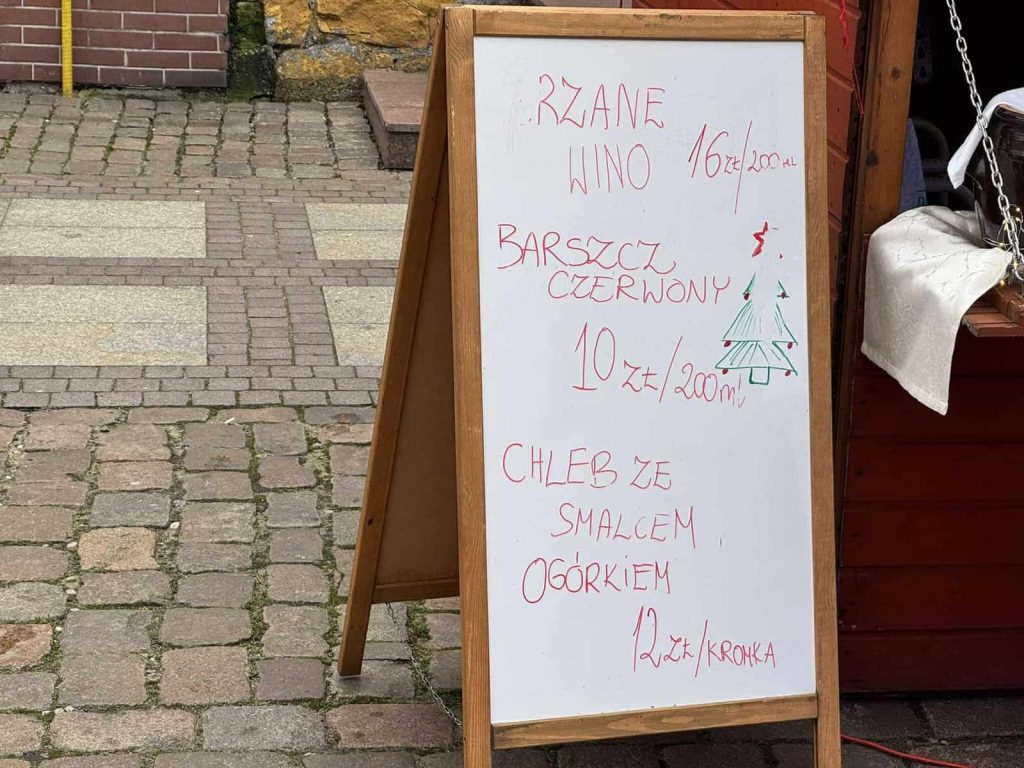 RZANE
WINO 16 ZŁ/200ml
BARSZCZ
CZERWONY
10 ZŁ/200ml
CHLEB ZE
SMALCEM
OGÓRKIEM
12 ZŁ/KROMKA